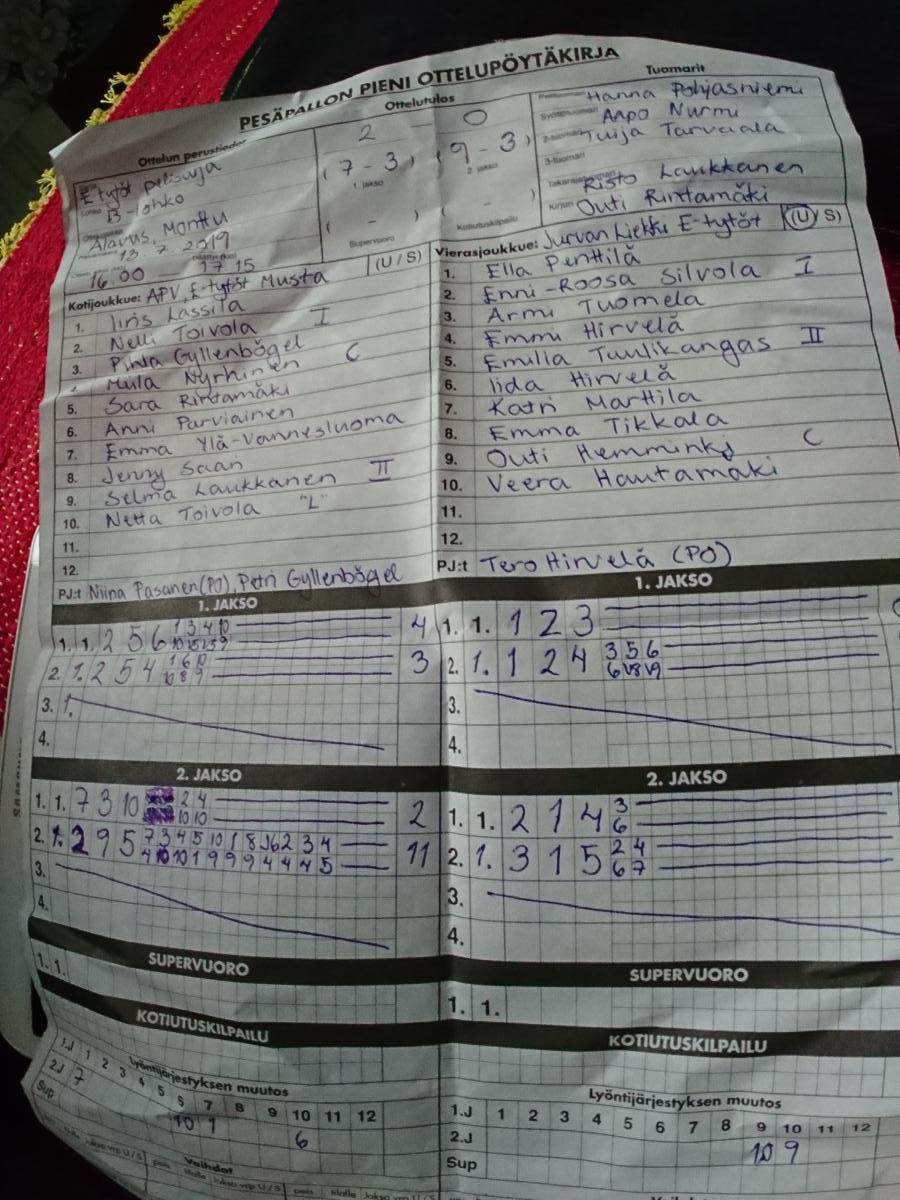 PESÄPALLON PIENI OTTELUPÖYTÄKIRJA
Ottelun perustiedot
Ottelutulos
Tuomarit
E-tytöt pelisarja
B-lohko
Alavus, Monttu
13.7.2019
16.00 17 15
2 0
(7 - 3) (9 - 3)
1. jakso 2. jakso
( - ) ( - )
Supervuoro Kotiutuskilpailu
Hanna Pohjasniemi
Aapo Nurmi
2-tuomari Tuija Tarvaala
3-tuomari
Risto Laukkanen
Kirjuri Outi Rintamäki
Kotijoukkue: APV, E-tytöt Musta (U / S)
1. Iiris Lassila
2. Nelli Toivola I
3. Pihla Gyllenbögel
Miila Nyrhinen C
5. Sara Rintamäki
6. Anni Parviainen
7. Emma Ylä-Vannesluoma
8. Jenny Saari
9. Selma Laukkanen II
10. Netta Toivola "L"
11.
12.
PJ:t Niina Pasanen (PJ), Petri Gyllenbögel
Vierasjoukkue: Jurvan Liekki E-tytöt (U / S)
1. Ella Penttilä
2. Enni-Roosa Silvola I
3. Armi Tuomela
4. Emmi Hirvelä
5. Emilia Tuulikangas II
6. Iida Hirvelä
7. Katri Marttila
8. Emma Tikkala
9. Outi Hemminki C
10. Veera Hautamäki
11.
12.
PJ:t Tero Hirvelä (PJ)
1. JAKSO
1. 1. 2 5 6 1 3 4 10 4
2. 1. 2 5 4 1 6 10 3
10 8 9
3. 1.
4.
2. JAKSO
1. 1. 7 3 10 2 4 2
10 10
2. 1. 2 9 5 7 3 4 5 10 1 8 6 2 3 4 11
4 10 10 1 9 9 9 4 4 4 5
3.
4.
SUPERVUORO
1. 1.
KOTIUTUSKILPAILU
Lyöntijärjestyksen muutos
1.J 1 2 3 4 5 6 7 8 9 10 11 12
2.J 7 10 1 6
Sup
Vaihdot
1. JAKSO
1. 1. 1 2 3
2. 1. 1 2 4 3 5 6
3.
4.
2. JAKSO
1. 1. 2 1 4 3
6
2. 1. 3 1 5 2 4
6 7
3.
4.
SUPERVUORO
1. 1.
KOTIUTUSKILPAILU
Lyöntijärjestyksen muutos
1.J 1 2 3 4 5 6 7 8 9 10 11 12
2.J 10 9
Sup